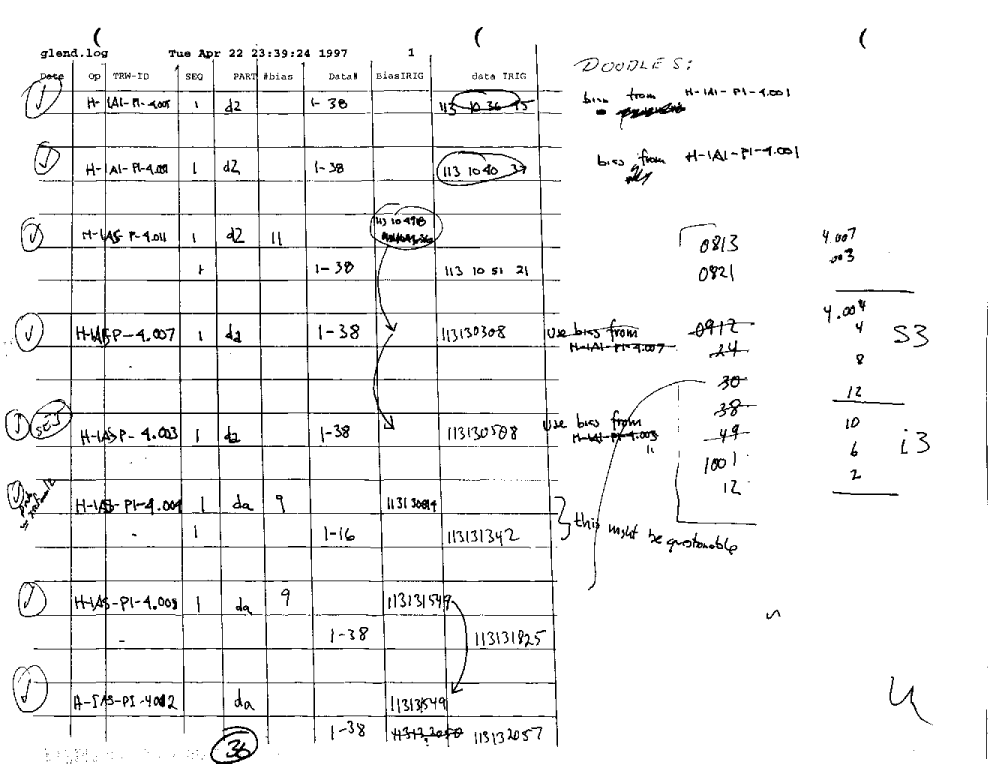 glend.log Tue Apr 22 23:39:24 1997 1
Date Op TRW-ID SEQ PART #bias Data# BiasIRIG data IRIG
DOODLES:
H-IAI-PI-4.005 1 d2 1-38 113 10 36 45
bias from H-IAI-PI-4.001
H-IAI-PI-4.001 1 d2 1-38 113 10 40 37
bias from H-IAI-PI-4.001
H-IAS-P-4.011 1 d2 11
1 1-38 113 10 51 21
0813 4.007
0821 .003
H-IAS-P-4.007 1 d2 1-38 113130308
use bias from
H-IAI-PI-4.007
0912 4.004
24 4 S3
8
30 12
38 10
49 6 i3
1001 2
12
H-IAS-P-4.003 1 d2 1-38 113130508
use bias from
H-IAI-PI-4.003
11
H-IAS-PI-4.004 1 da 9
1 1-16 113131342
this might be questionable
H-IAS-PI-4.008 1 da 9 113131549
1-38 113131825
H-IAS-PI-4012 da 113131549
1-38 113132057
36